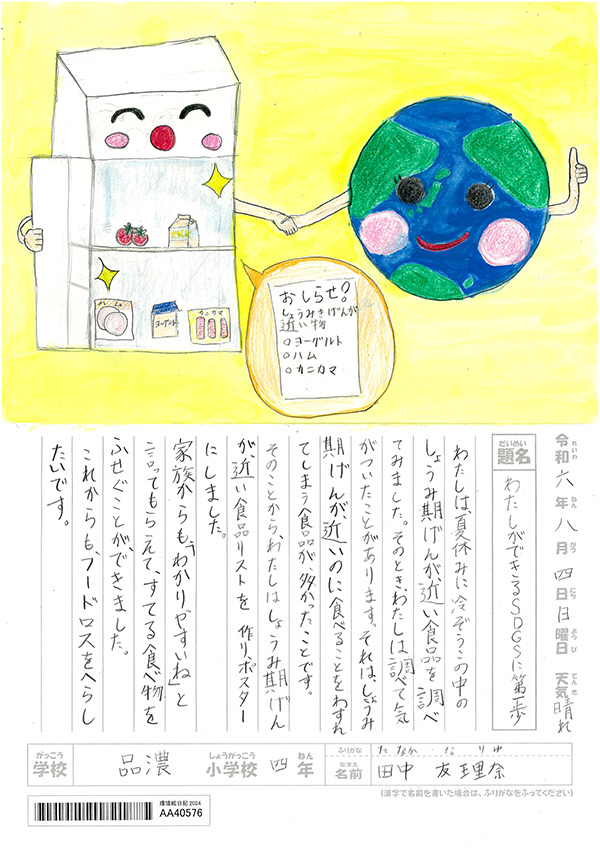 MILK
ハム
ヨーグルト
カニカマ
おしらせ!
しょうみきげんが
近い物
○ヨーグルト
○ハム
○カニカマ
令和六年八月四日日曜日 天気晴れ
れいわ ねん がつ にち ようび てんき
だいめい
題名
わたしができるSDGSに第一歩
わたしは、夏休みに冷ぞうこの中の
しょうみ期げんが近い食品を調べ
てみました。そのとき、わたしは調べて気
がついたことがあります。それは、しょうみ
期げんが近いのに食べることをわすれ
てしまう食品が、多かったことです。
そのことから、わたしはしょうみ期げん
が、近い食品リストを作り、ポスター
にしました。
家族からも「わかりやすいね」と
言ってもらえて、すてる食べ物を
ふせぐことができました。
これからも、フードロスをへらし
たいです。
がっこう
学校
品濃
しょうがっこう
小学校
四
ねん
年
ふりがな
たなか ゆりな
なまえ
名前
田中 友理奈
(漢字で名前を書いた場合は、ふりがなをふってください)
環境絵日記2024
AA40576